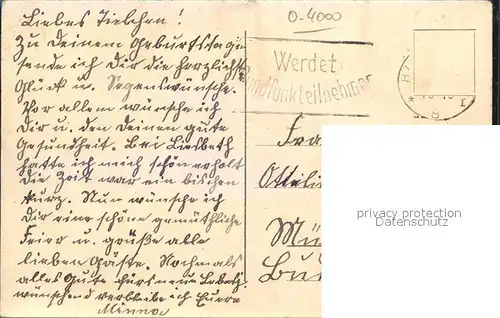 Liebes Tielchen!
Zu Deinem Geburtstage
sende ich Dir die herzlichst
Glück u. Segenswünsche.
Vor allem wünsche ich
Dir u. den Deinen gute
Gesundheit. Bei Liesbeth
hatte ich mich schön erholt
die Zeit war ein bischen
kurz. Nun wünsche ich
Dir eine schöne gemütliche
Feier u. grüße alle
lieben Gäste. Nochmals
alles Gute fürs neue Lebensj.
wünschend verbleibe ich Euere
Minna
0-4000
Werdet
Rundfunkteilnehmer
Fra
Ottilie
Mün
privacy protection
Datenschutz